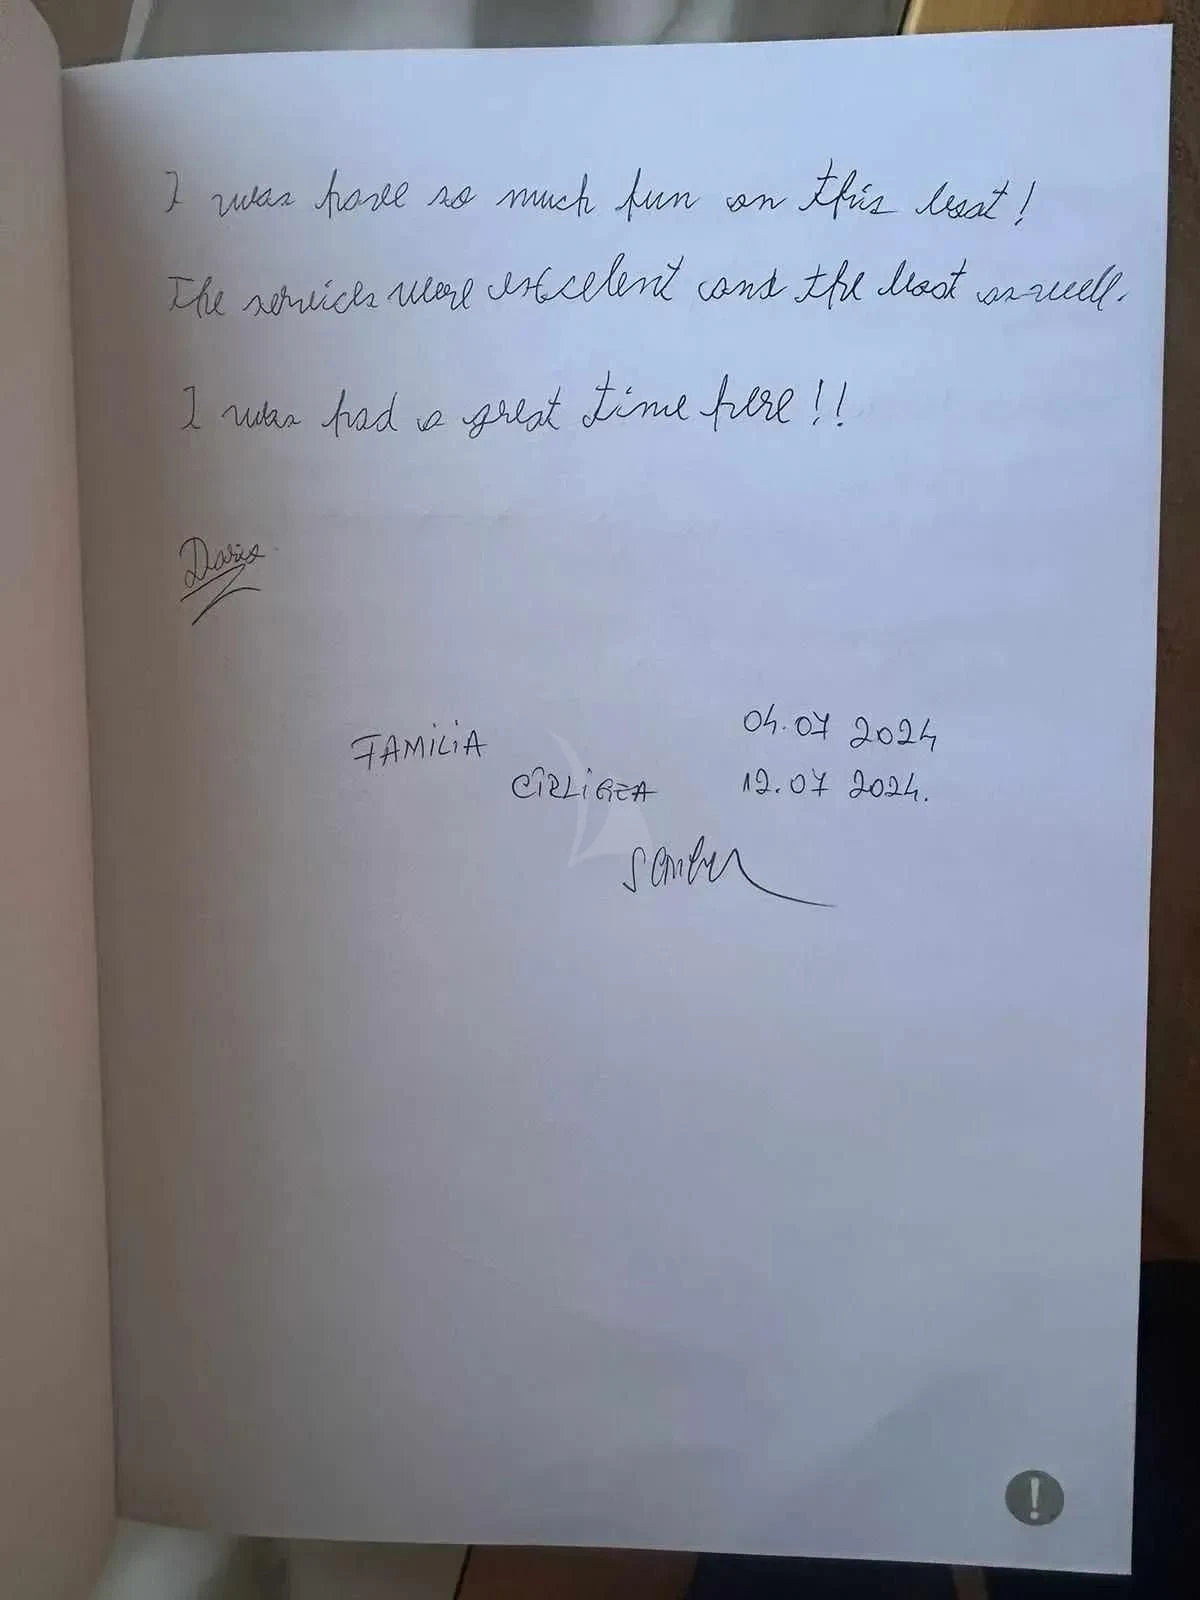 I was have so much fun on this boat!
The services were excelent and the boat as well.
I was had a great time here!!
Daria
FAMILIA 04.07 2024
CÎRLIGEA 12.07 2024.
!